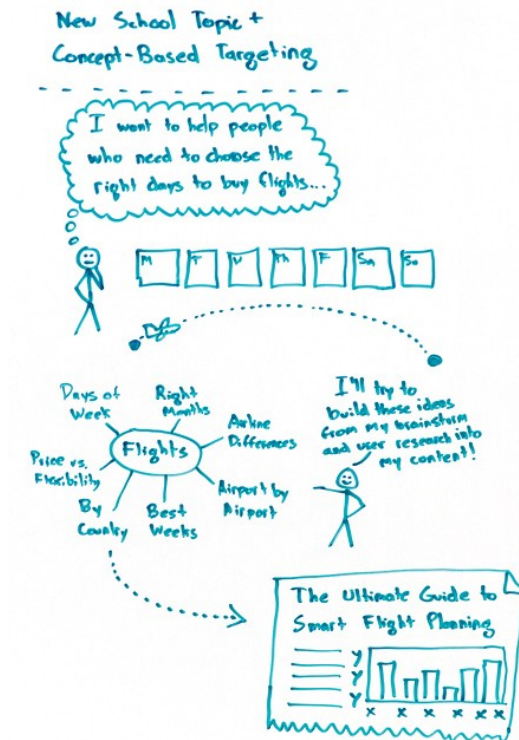 New School Topic +
Concept-Based Targeting
I want to help people
who need to choose the
right days to buy flights...
M T W Th F Sa Su
Days of
Week
Right
Months
Airline
Differences
Flights
Price vs.
Flexibility
Airport by
Airport
By
Country
Best
Weeks
I'll try to
build these ideas
from my brainstorm
and user research into
my content!
The Ultimate Guide to
Smart Flight Planning
y
y
y
x x x x x